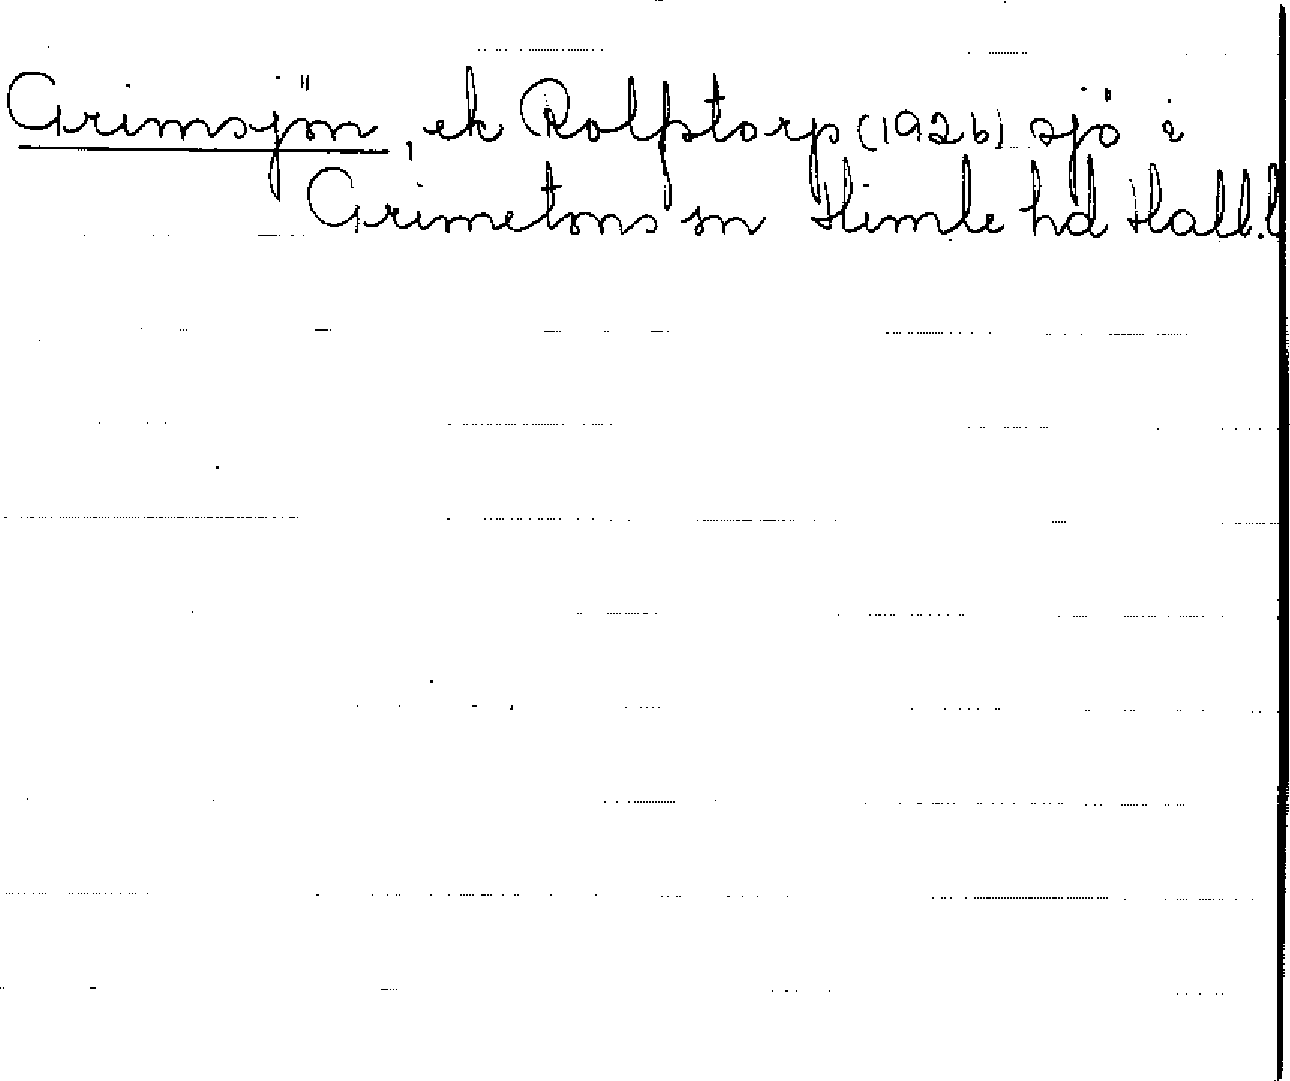 Grimsjön, ek Rolfstorp (1926) sjö i
Grimetons sn Himle hd Hall.l